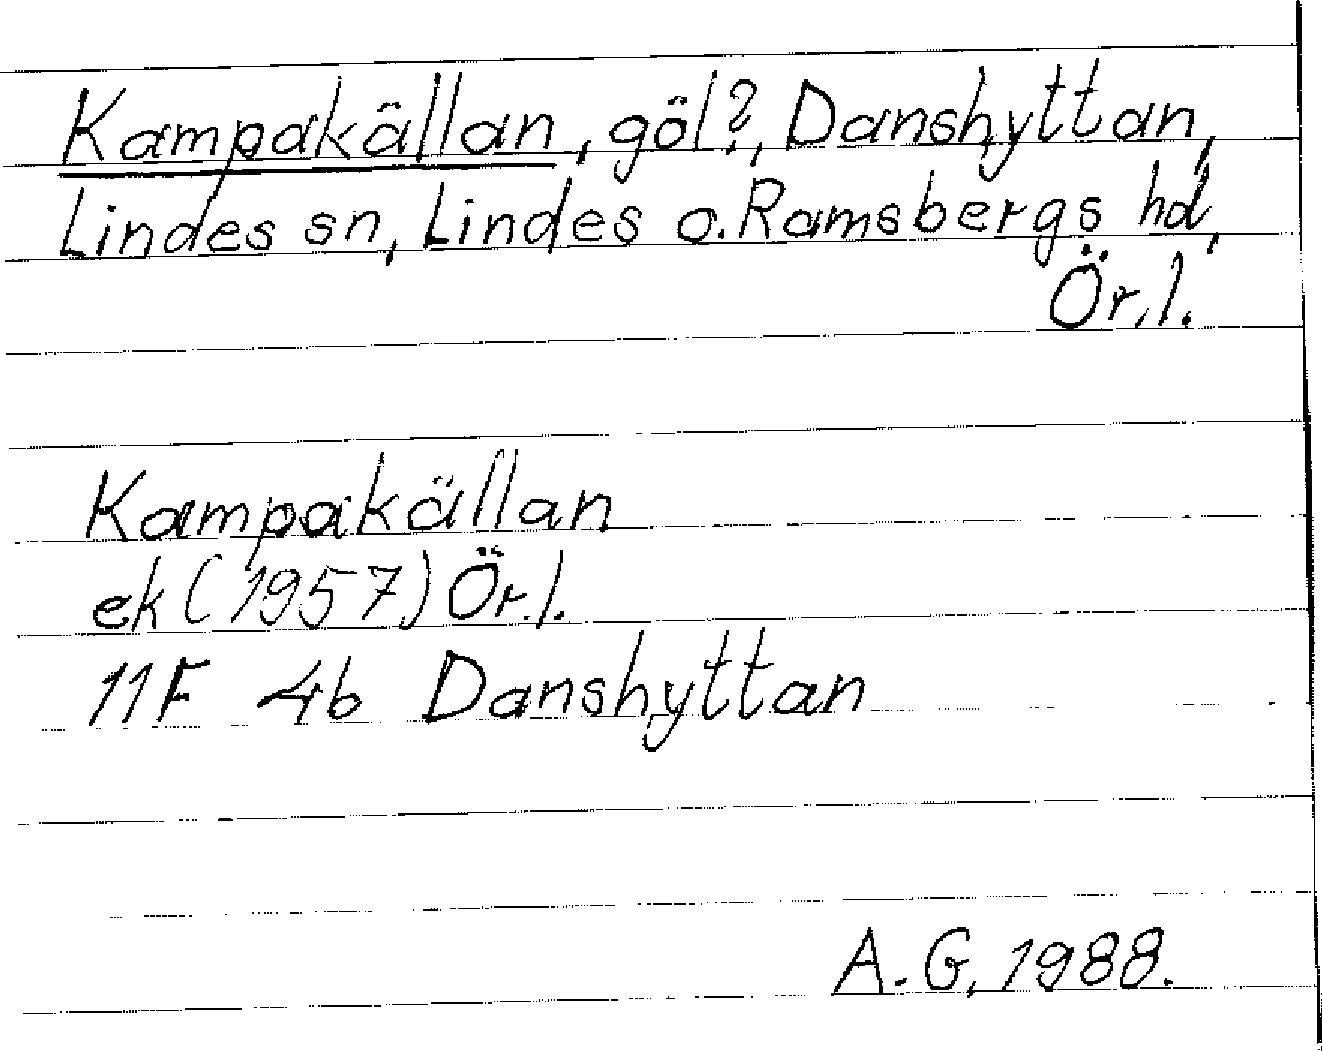 Kampakällan, göl?, Danshyttan,
Lindes sn, Lindes o. Ramsbergs hd,
Ör.l.
Kampakällan
ek (1957) Ör.l.
11F 4b Danshyttan
A.G. 1988.